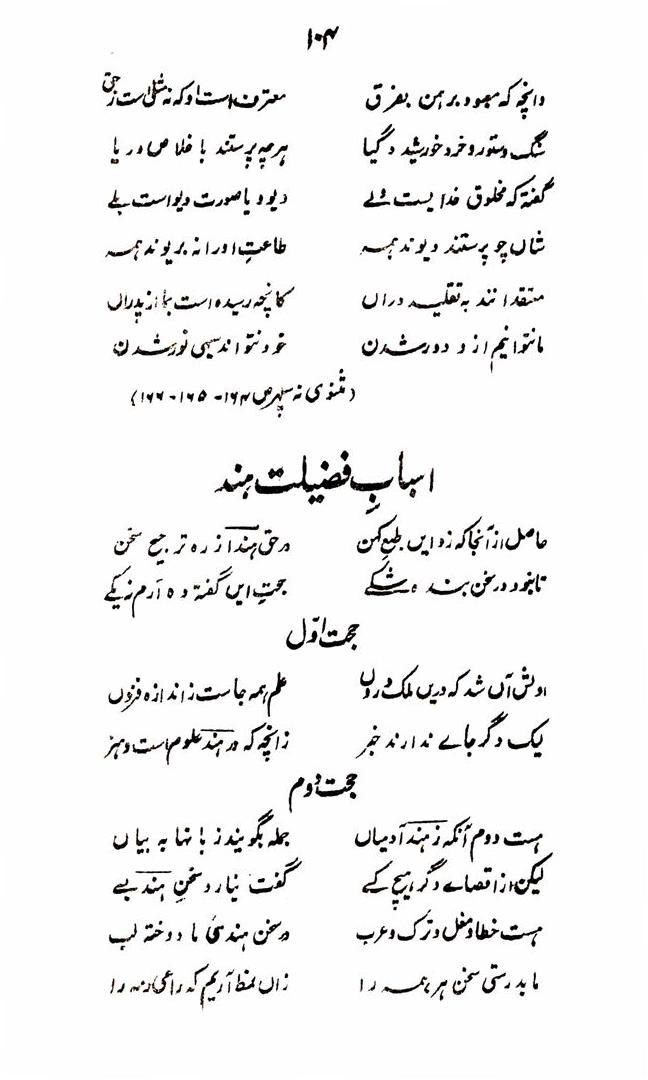 ۱۰۴
وانچہ کہ معبود برہمن بفرق معترف است او کہ نہ مثلی است ز حق
سنگ و ستور و خرد خورشید و گیا ہرچہ پرستند باخلاص و ریا
گفتۂ کہ مخلوق خدایست ولے دیو و یا صورت دیو است بلے
شاں چو پرستند دیوند ہمہ طاعتِ او را نہ بریوند ہمہ
معتقد انند بہ تقلید دراں کانچہ رسیدہ است بما از پدراں
ما نتوانیم ازو دور شدن خود نتواند سیہی نور شدن
(مثنوی نہ سپہر ص ۱۶۴-۱۶۵-۱۶۶)
اسبابِ فضیلت ہند
حاصل از آنجا کہ زد ایں طبعِ کہن در حق ہند از رہ ترجیح سخن
تا نبود در سخن بندہ شکے حجتِ ایں گفتہ دہ آرم نہ یکے
حجت اوّل
اولش آں شد کہ دریں ملک دروں علم ہمہ جاست ز اندازہ فزوں
لیک دگر جاے ندارند خبر زانچہ کہ در ہند علوم است و ہنر
حجت دوم
ہست دوم آنکہ ز ہند آدمیاں جملہ بگویند زبانہا بہ بیاں
لیکن از اقصاے دگر ہیچ کسے گفت نیارد سخنِ ہند بسے
ہست خطا و مغل و ترک و عرب در سخن ہندیٔ ما دوختہ لب
ما بدرستی سخن ہر ہمہ را زاں نمط آریم کہ راعی رمہ را